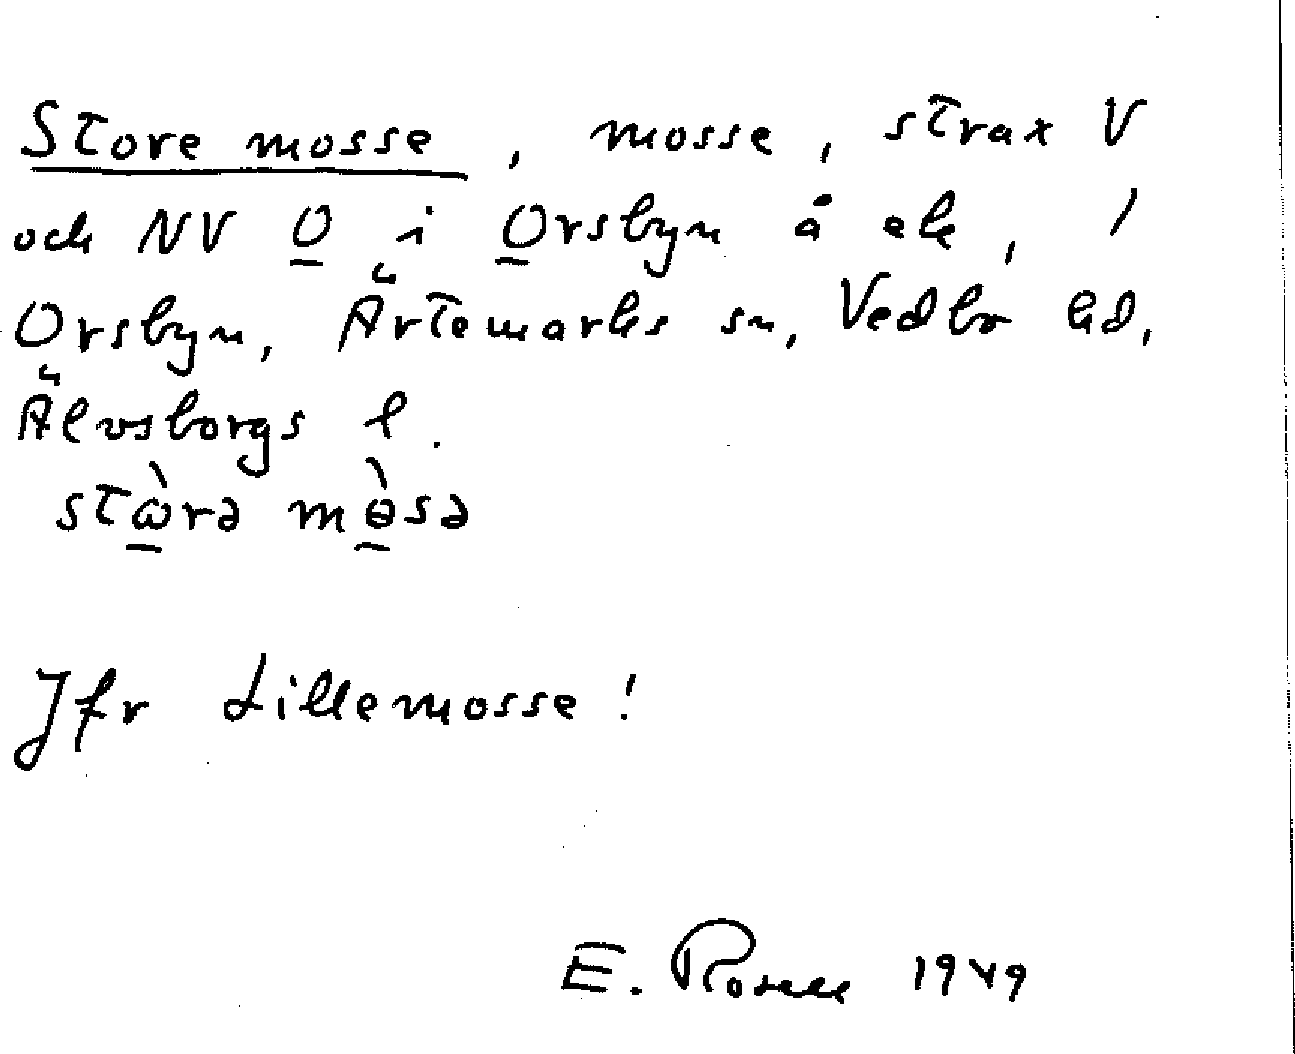 Store mosse, mosse, strax V
och NV O i Orsbyn å ek, i
Orsbyn, Ärtemarks sn, Vedbo hd,
Älvsborgs l.
stὼrə mɵ̀sə
Jfr Lillemosse!
E. Rosell 1949